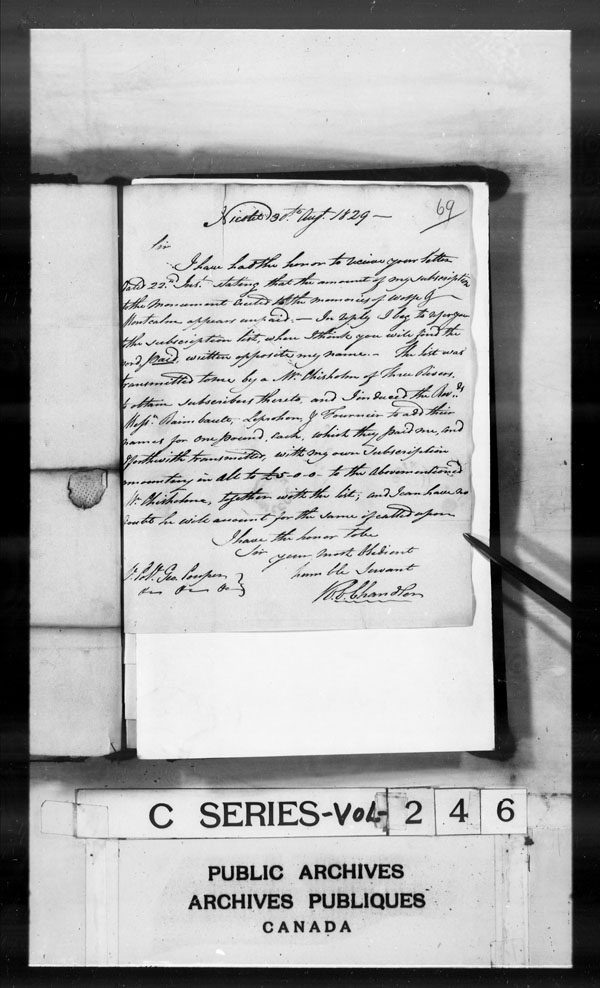 69
Nicolet 30th Augt. 1829 —
Sir
I have had the honor to receive your letter
dated 22.d Inst. stating that the amount of my subscription
to the monument erected to the memories of Wolfe &
Montcalm appears unpaid. — In reply I beg to refer you
to the subscription list, where I think you will find the
word paid, written opposite my name. — The list was
transmitted to me by a Mr. Chisholm of Three Rivers,
to obtain subscribers thereto, and I induced the Revds.
Messrs. Raimbault, Leprohon, & Fournier to add their
names for one pound, each, which they paid me, and
I forthwith transmitted, with my own Subscription
amounting in all to £5-0-0- to the abovementioned
Mr. Chisholm, together with the list; and I can have no
doubt he will account for the same if called upon
I have the honor to be
Sir your most Obedient
humble Servant
Lt. Coll. Geo. Couper
K.C. Chandler
C SERIES-VOL- 2 4 6
PUBLIC ARCHIVES
ARCHIVES PUBLIQUES
CANADA